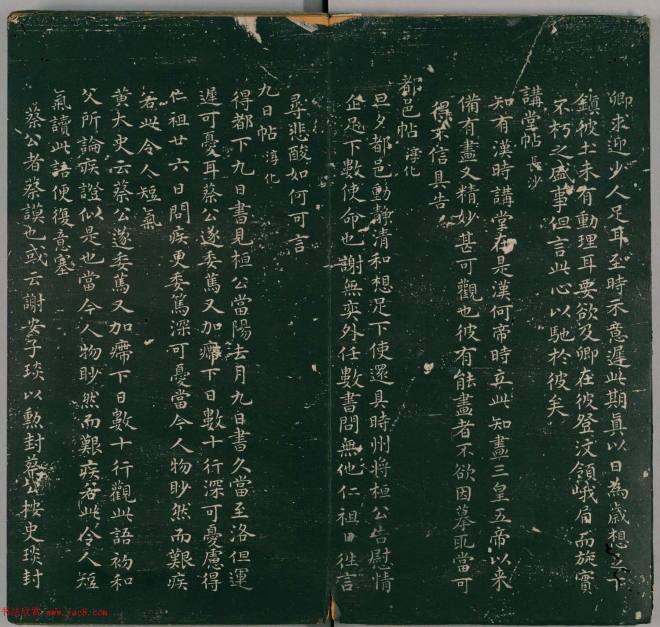 卿求迎少人足耳至時示意遲此期真以日為歲想足下
鎮彼土未有動理耳要欲及卿在彼登汶領峨眉而旋實
不朽之盛事但言此心以馳於彼矣
講堂帖 長沙
知有漢時講堂在是漢何帝時立此知畫三皇五帝以来
備有畫又精妙甚可觀也彼有能畫者不欲因摹取當可
得不信具告
都邑帖 淳化
旦夕都邑動靜清和想足下使還具時州將桓公告慰情
企足下數使命也謝無奕外任數書問無他仁祖日往言
尋悲酸如何可言
九日帖 淳化
得都下九日書見桓公當陽去月九日書久當至洛但運
遲可憂耳蔡公遂委篤又加癤下日數十行深可憂慮得
仁祖廿六日問疾更委篤深可憂當今人物眇然而艱疾
若此令人短氣
黄大史云蔡公遂委篤又加癤下日數十行觀此語礿和
父所論疾證似是也當今人物眇然而艱疾若此令人短
氣讀此語便復意塞
蔡公者蔡謨也或云謝安子琰以勲封蔡公桉史琰封
书法欣赏 www.yac8.com